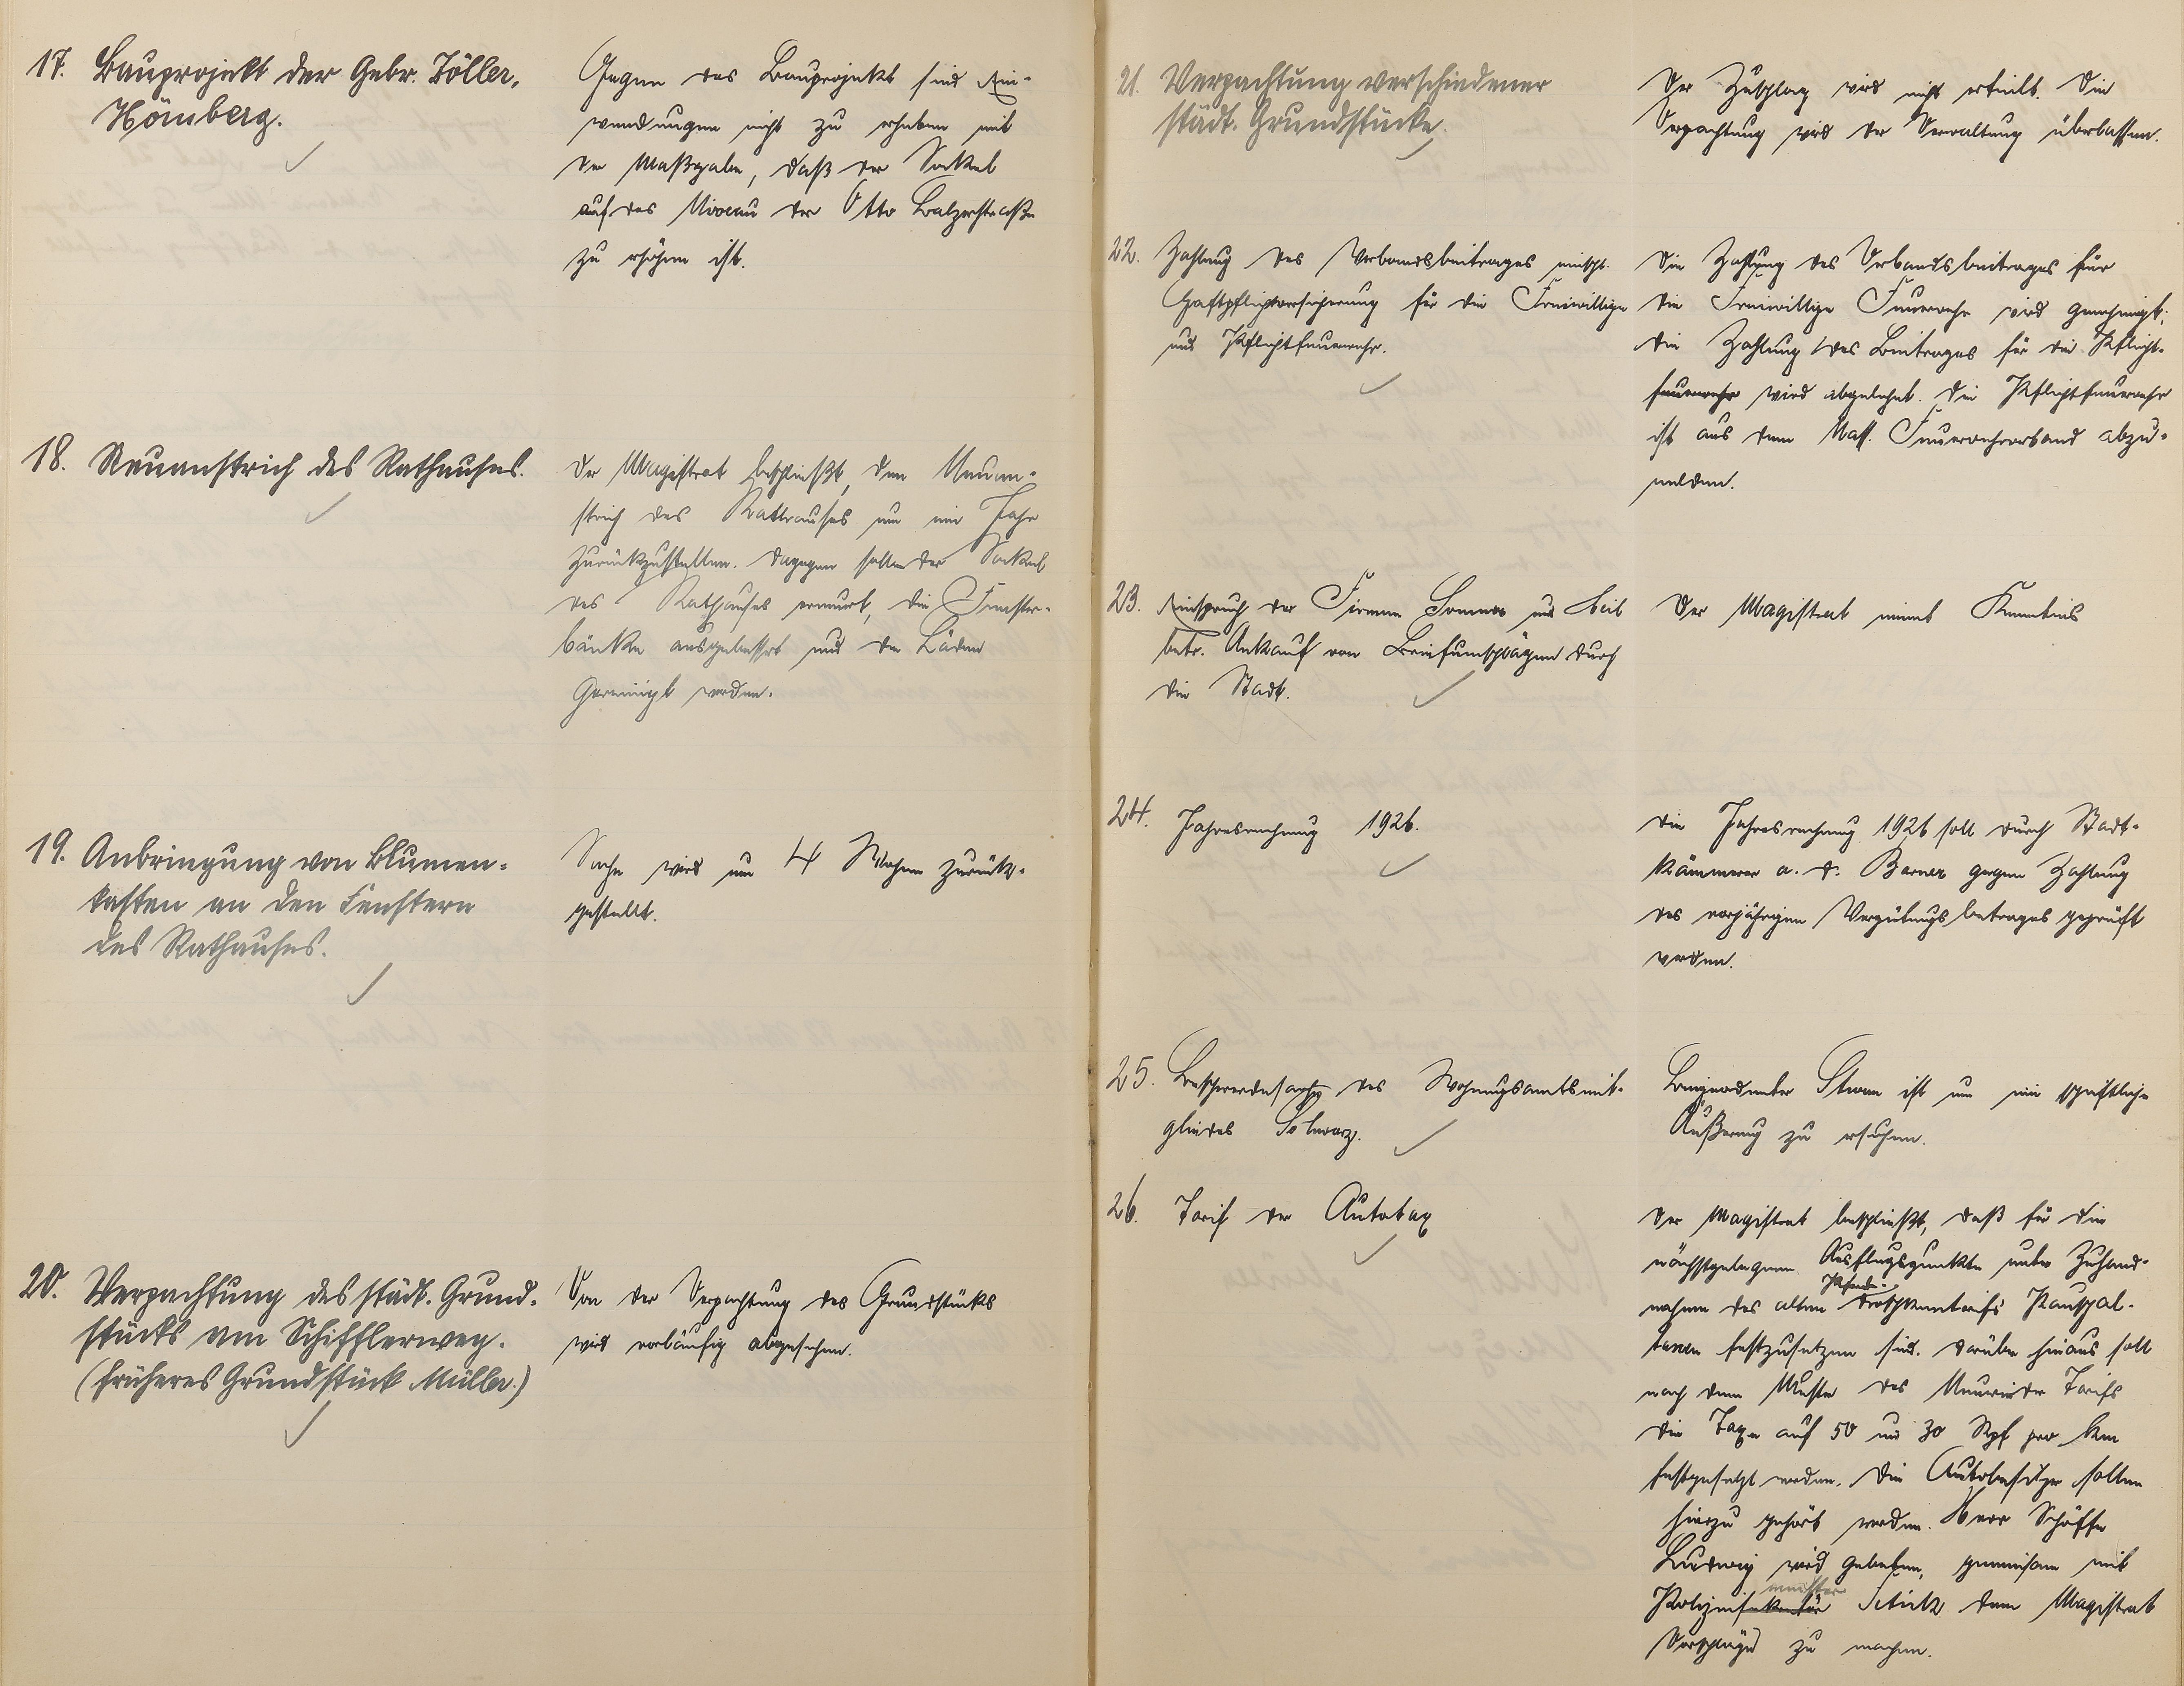 17. Bauprojekt der Gebr. Töller,
Hömberg.
Gegen das Bauprojekt sind Ein-
wendungen nicht zu erheben mit
der Maßgabe, daß der Sockel
auf das Niveau der Otto Balzerstraße
zu erhöhen ist.
18. Neuanstrich des Rathauses.
Der Magistrat beschließt, den Neuan-
strich des Rathauses um ein Jahr
zurückzustellen. Dagegen sollen der Sockel
des Rathauses erneuert, die Fenster-
bänke ausgebessert und die Läden
gereinigt werden.
19. Anbringung von Blumen-
kasten an den Fenstern
des Rathauses.
Sache wird um 4 Wochen zurück-
gestellt.
20. Verpachtung des städt. Grund-
stücks am Schifflerweg.
(früheres Grundstück Müller.)
Von der Verpachtung des Grundstücks
wird vorläufig abgesehen.
21. Verpachtung verschiedener
städt. Grundstücke.
Der Zuschlag wird nicht erteilt. Die
Verpachtung wird der Verwaltung überlassen.
22. Zahlung des Verbandsbeitrages einschl.
Haftpflichtversicherung für die Freiwillige
und Pflichtfeuerwehr.
Die Zahlung des Verbandsbeitrages für
die Freiwillige Feuerwehr wird genehmigt;
die Zahlung des Beitrages für die Pflicht-
feuerwehr wird abgelehnt. Die Pflichtfeuerwehr
ist aus dem Nass. Feuerwehrverband abzu-
melden.
23. Einspruch der Firmen Sommer und Beil
betr. Ankauf von Briefumschlägen durch
die Stadt.
Der Magistrat nimmt Kenntnis
24. Jahresrechnung 1926.
Die Jahresrechnung 1926 soll durch Stadt-
kämmerer a. D. Barner gegen Zahlung
des vorjährigen Vergütungsbetrages geprüft
werden.
25. Beschwerdesache des Wohnungsamtsmit-
gliedes Schwarz.
Beigeordneter Sturm ist um eine schriftliche
Äußerung zu ersuchen.
26. Tarif der Autotax
Der Magistrat beschließt, daß für die
nächstgelegenen Ausflugspunkte unter Zuhand-
nahme des alten Pferde-Droschkentarifs Pauschal-
taxen festzusetzen sind. Darüber hinaus soll
nach dem Muster des Neuwieder Tarifs
die Taxe auf 50 und 30 Rpf pro km
festgesetzt werden. Die Autobesitzer sollen
hierzu gehört werden. Herr Schöffe
Ludwig wird gebeten, gemeinsam mit
Polizeimeister Stück dem Magistrat
Vorschläge zu machen.